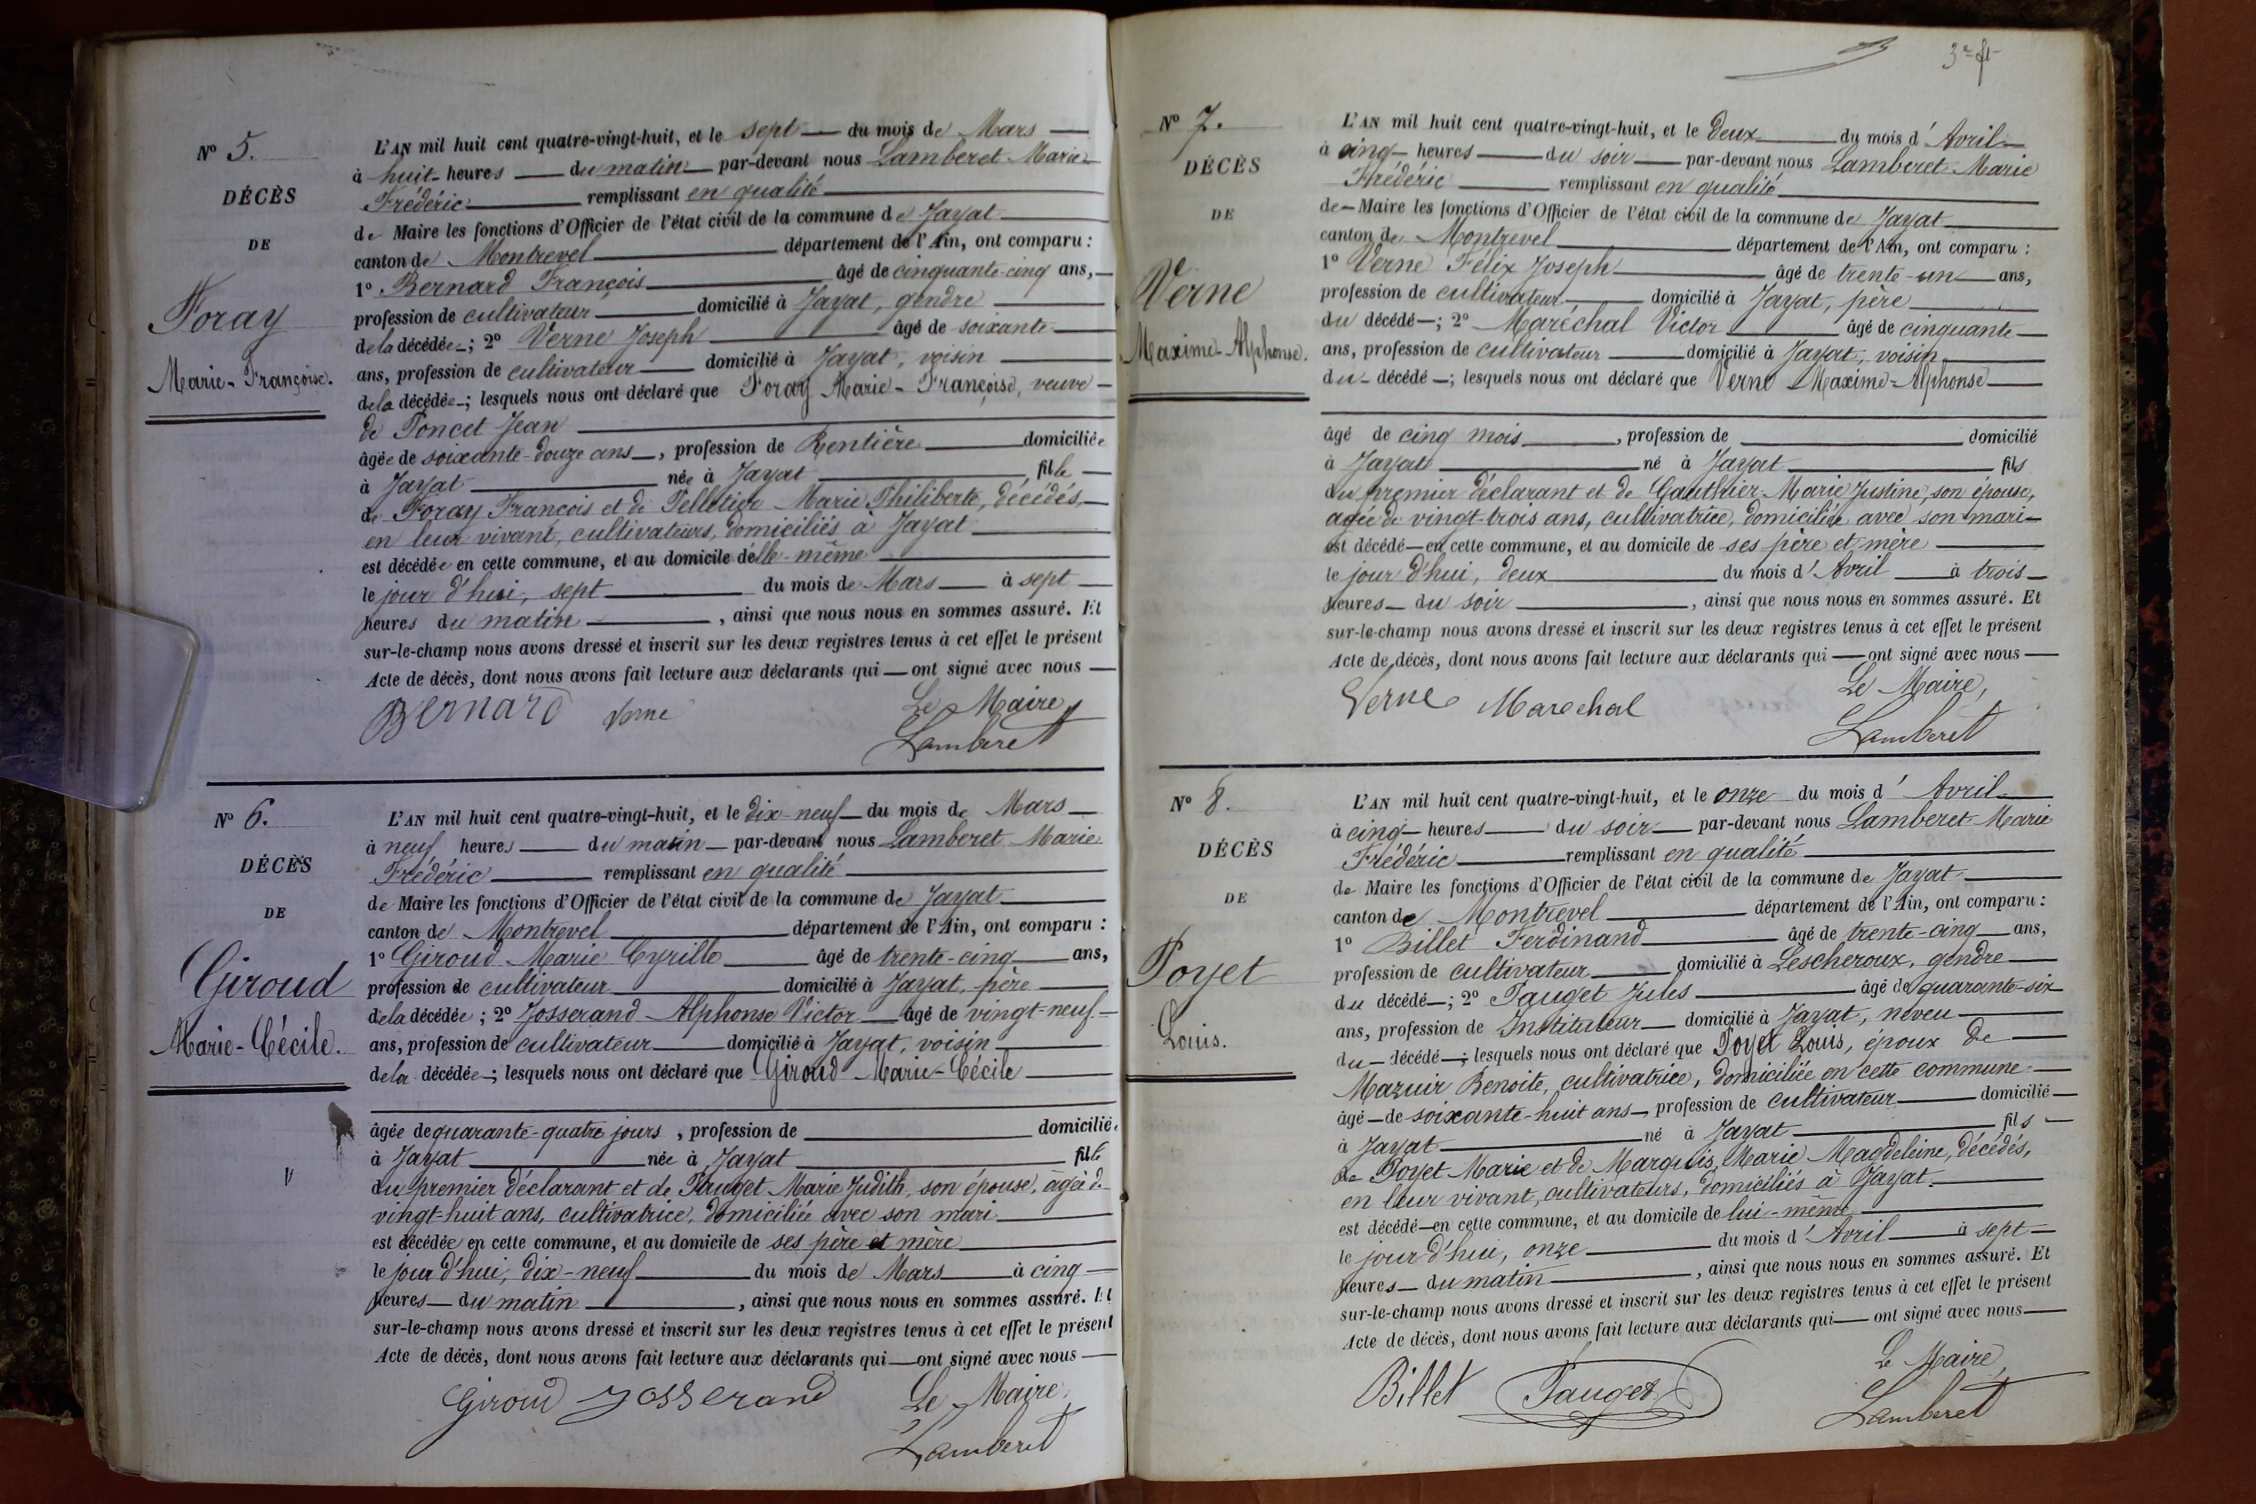 Nº 5.
DÉCÈS
DE
Foray
Marie-Françoise.
L'AN mil huit cent quatre-vingt-huit, et le sept du mois de Mars
à huit heures du matin par-devant nous Lamberet Marie
Frédéric remplissant en qualité
de Maire les fonctions d'Officier de l'état civil de la commune de Jayat
canton de Montrevel département de l'Ain, ont comparu :
1º Bernard François âgé de cinquante-cinq ans,
profession de cultivateur domicilié à Jayat, gendre
de la décédée ; 2º Verne Joseph âgé de soixante
ans, profession de cultivateur domicilié à Jayat, voisin
de la décédée ; lesquels nous ont déclaré que Foray Marie-Françoise, veuve
de Poncet Jean
âgée de soixante-douze ans, profession de Rentière domiciliée
à Jayat née à Jayat fille
de Foray François et de Pelletier Marie Philiberte, décédés,
en leur vivant, cultivateurs, domiciliés à Jayat
est décédée en cette commune, et au domicile d'elle-même
le jour d'hui, sept du mois de Mars à sept
heures du matin, ainsi que nous nous en sommes assuré. Et
sur-le-champ nous avons dressé et inscrit sur les deux registres tenus à cet effet le présent
Acte de décès, dont nous avons fait lecture aux déclarants qui ont signé avec nous
Le Maire,
Bernard Verne
Lamberet
Nº 6.
DÉCÈS
DE
Giroud
Marie-Cécile.
L'AN mil huit cent quatre-vingt-huit, et le dix-neuf du mois de Mars
à neuf heures du matin par-devant nous Lamberet Marie
Frédéric remplissant en qualité
de Maire les fonctions d'Officier de l'état civil de la commune de Jayat
canton de Montrevel département de l'Ain, ont comparu :
1º Giroud Marie Cyrille âgé de trente-cinq ans,
profession de cultivateur domicilié à Jayat, père
de la décédée ; 2º Josserand Alphonse Victor âgé de vingt-neuf
ans, profession de cultivateur domicilié à Jayat, voisin
de la décédée ; lesquels nous ont déclaré que Giroud Marie-Cécile
âgée de quarante-quatre jours, profession de domiciliée
à Jayat née à Jayat fille
du premier déclarant et de Pauget Marie Judith, son épouse, âgée de
vingt-huit ans, cultivatrice, domiciliée avec son mari
est décédée en cette commune, et au domicile de ses père et mère
le jour d'hui, dix-neuf du mois de Mars à cinq
heures du matin, ainsi que nous nous en sommes assuré. Et
sur-le-champ nous avons dressé et inscrit sur les deux registres tenus à cet effet le présent
Acte de décès, dont nous avons fait lecture aux déclarants qui ont signé avec nous
Giroud Josserand Le Maire,
Lamberet
3e ft
Nº 7.
DÉCÈS
DE
Verne
Maxime-Alphonse.
L'AN mil huit cent quatre-vingt-huit, et le deux du mois d'Avril
à cinq heures du soir par-devant nous Lamberet Marie
Frédéric remplissant en qualité
de Maire les fonctions d'Officier de l'état civil de la commune de Jayat
canton de Montrevel département de l'Ain, ont comparu :
1º Verne Félix Joseph âgé de trente-un ans,
profession de cultivateur domicilié à Jayat, père
du décédé ; 2º Maréchal Victor âgé de cinquante
ans, profession de cultivateur domicilié à Jayat, voisin
du décédé ; lesquels nous ont déclaré que Verne Maxime-Alphonse
âgé de cinq mois, profession de domicilié
à Jayat né à Jayat fils
du premier déclarant et de Gauthier Marie Justine, son épouse,
agée de vingt-trois ans, cultivatrice, domiciliée avec son mari
est décédé en cette commune, et au domicile de ses père et mère
le jour d'hui, deux du mois d'Avril à trois
heures du soir, ainsi que nous nous en sommes assuré. Et
sur-le-champ nous avons dressé et inscrit sur les deux registres tenus à cet effet le présent
Acte de décès, dont nous avons fait lecture aux déclarants qui ont signé avec nous
Verne Marechal Le Maire,
Lamberet
Nº 8.
DÉCÈS
DE
Poyet
Louis.
L'AN mil huit cent quatre-vingt-huit, et le onze du mois d'Avril
à cinq heures du soir par-devant nous Lamberet Marie
Frédéric remplissant en qualité
de Maire les fonctions d'Officier de l'état civil de la commune de Jayat
canton de Montrevel département de l'Ain, ont comparu :
1º Billet Ferdinand âgé de trente-cinq ans,
profession de cultivateur domicilié à Lescheroux, gendre
du décédé ; 2º Pauget Jules âgé de quarante-six
ans, profession de Instituteur domicilié à Jayat, neveu
du décédé ; lesquels nous ont déclaré que Poyet Louis, époux de
Mazuir Benoite, cultivatrice, domiciliée en cette commune
âgé de soixante-huit ans profession de cultivateur domicilié
à Jayat né à Jayat fils
de Poyet Marie et de Marquis, Marie Magdeleine, décédés,
en leur vivant, cultivateurs, domiciliés à Jayat.
est décédé en cette commune, et au domicile de lui-même
le jour d'hui, onze du mois d'Avril à sept
heures du matin, ainsi que nous nous en sommes assuré. Et
sur-le-champ nous avons dressé et inscrit sur les deux registres tenus à cet effet le présent
Acte de décès, dont nous avons fait lecture aux déclarants qui ont signé avec nous
Billet Pauget Le Maire,
Lamberet